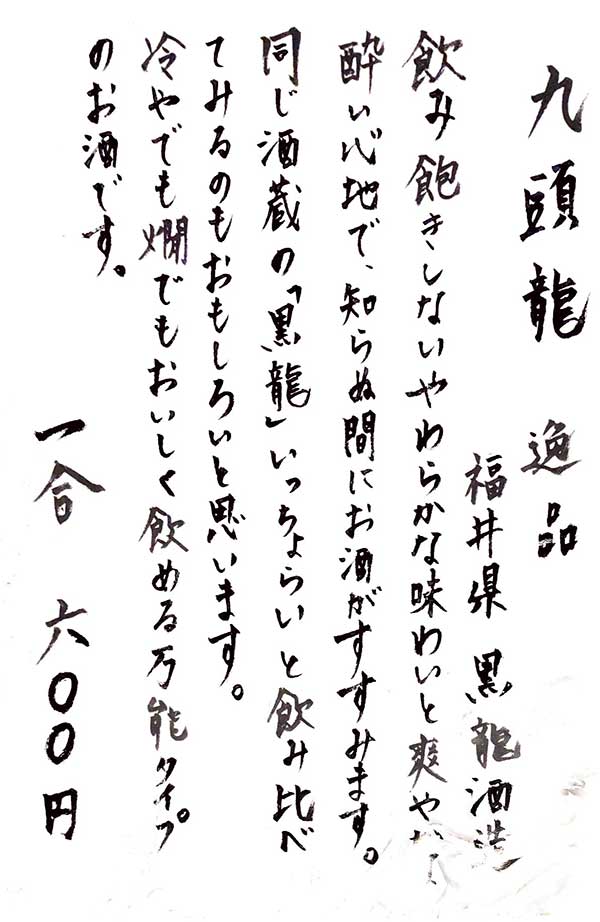 九頭龍 逸品
福井県 黒龍酒造
飲み飽きしないやわらかな味わいと爽やか
酔い心地で、知らぬ間にお酒がすすみます。
同じ酒蔵の「黒龍」いっちょらいと飲み比べ
てみるのもおもしろいと思います。
冷やでも燗でもおいしく飲める万能タイプ
のお酒です。
一合 六〇〇円